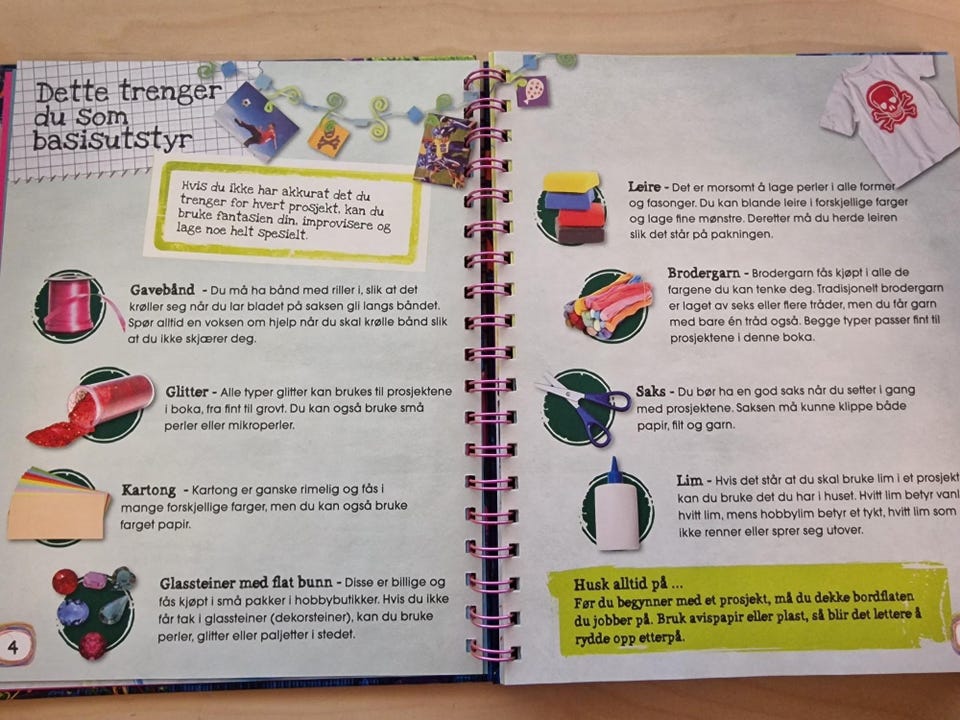 Dette trenger
du som
basisutstyr
Hvis du ikke har akkurat det du
trenger for hvert prosjekt, kan du
bruke fantasien din, improvisere og
lage noe helt spesielt.
Gavebånd - Du må ha bånd med riller i, slik at det
krøller seg når du lar bladet på saksen gli langs båndet.
Spør alltid en voksen om hjelp når du skal krølle bånd slik
at du ikke skjærer deg.
Glitter - Alle typer glitter kan brukes til prosjektene
i boka, fra fint til grovt. Du kan også bruke små
perler eller mikroperler.
Kartong - Kartong er ganske rimelig og fås i
mange forskjellige farger, men du kan også bruke
farget papir.
Glassteiner med flat bunn - Disse er billige og
fås kjøpt i små pakker i hobbybutikker. Hvis du ikke
får tak i glassteiner (dekorsteiner), kan du bruke
perler, glitter eller paljetter i stedet.
4
Leire - Det er morsomt å lage perler i alle former
og fasonger. Du kan blande leire i forskjellige farger
og lage fine mønstre. Deretter må du herde leiren
slik det står på pakningen.
Brodergarn - Brodergarn fås kjøpt i alle de
fargene du kan tenke deg. Tradisjonelt brodergarn
er laget av seks eller flere tråder, men du får garn
med bare én tråd også. Begge typer passer fint til
prosjektene i denne boka.
Saks - Du bør ha en god saks når du setter i gang
med prosjektene. Saksen må kunne klippe både
papir, filt og garn.
Lim - Hvis det står at du skal bruke lim i et prosjekt
kan du bruke det du har i huset. Hvitt lim betyr vanl
hvitt lim, mens hobbylim betyr et tykt, hvitt lim som
ikke renner eller sprer seg utover.
Husk alltid på ...
Før du begynner med et prosjekt, må du dekke bordflaten
du jobber på. Bruk avispapir eller plast, så blir det lettere å
rydde opp etterpå.